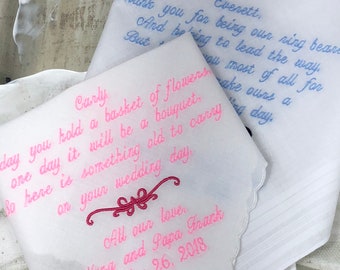 Everett,
Thank you for being our ring bearer
And helping to lead the way.
But most of all for
ours a
day.
Curly
day you hold a basket of flowers
one day it will be a bouquet,
So here is something old to carry
on your wedding day.
All our love,
and Papa Frank
26, 2018